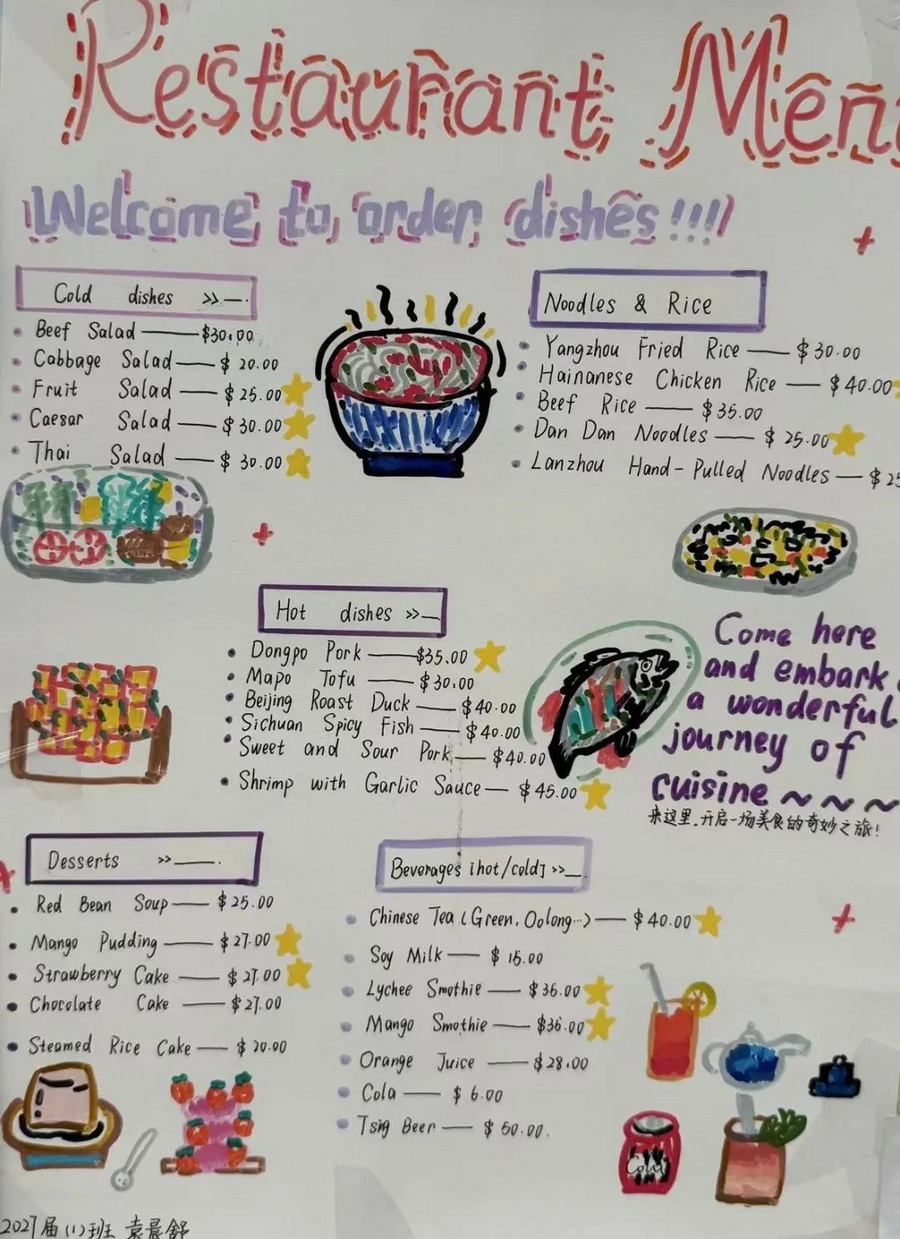 Restaurant Men
Welcome to order dishes!!!
Cold dishes >>—.
Beef Salad — $30.00
Cabbage Salad — $20.00
Fruit Salad — $25.00
Caesar Salad — $30.00
Thai Salad — $30.00
Noodles & Rice
Yangzhou Fried Rice — $30.00
Hainanese Chicken Rice — $40.00
Beef Rice — $35.00
Dan Dan Noodles — $25.00
Lanzhou Hand-Pulled Noodles — $25
Hot dishes >>—
Dongpo Pork — $35.00
Mapo Tofu — $30.00
Beijing Roast Duck — $40.00
Sichuan Spicy Fish — $40.00
Sweet and Sour Pork — $40.00
Shrimp with Garlic Sauce — $45.00
Come here
and embark
a wonderful
journey of
cuisine ~ ~ ~
来这里,开启一场美食的奇妙之旅!
Desserts >>—.
Red Bean Soup — $25.00
Mango Pudding — $27.00
Strawberry Cake — $27.00
Chocolate Cake — $27.00
Steamed Rice Cake — $20.00
Beverages [hot/cold] >>—.
Chinese Tea (Green, Oolong…) — $40.00
Soy Milk — $15.00
Lychee Smothie — $36.00
Mango Smothie — $36.00
Orange Juice — $28.00
Cola — $6.00
Tsig Beer — $50.00.
Cola
2027届(1)班 袁晨舒